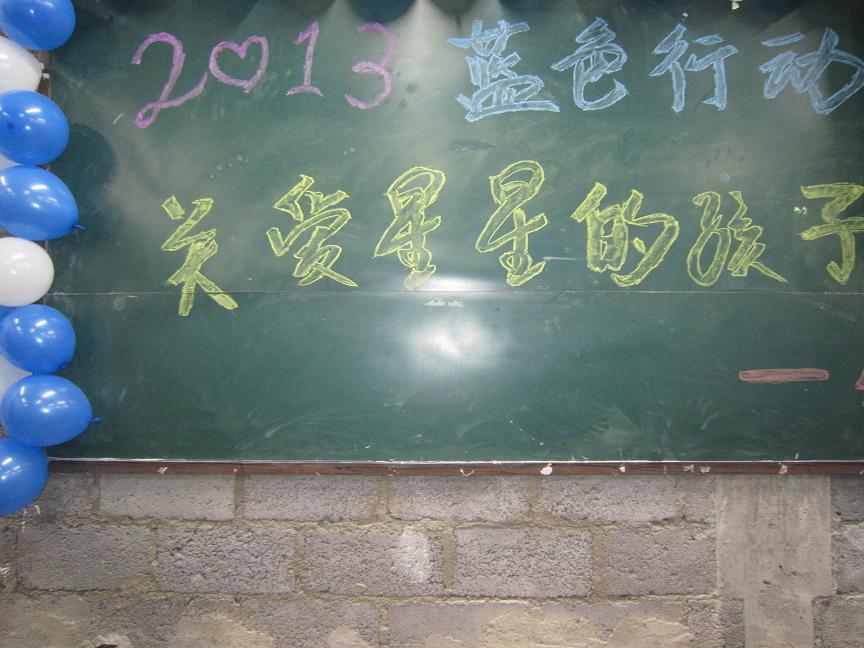 2013 蓝色行动
关爱星星的孩子
一